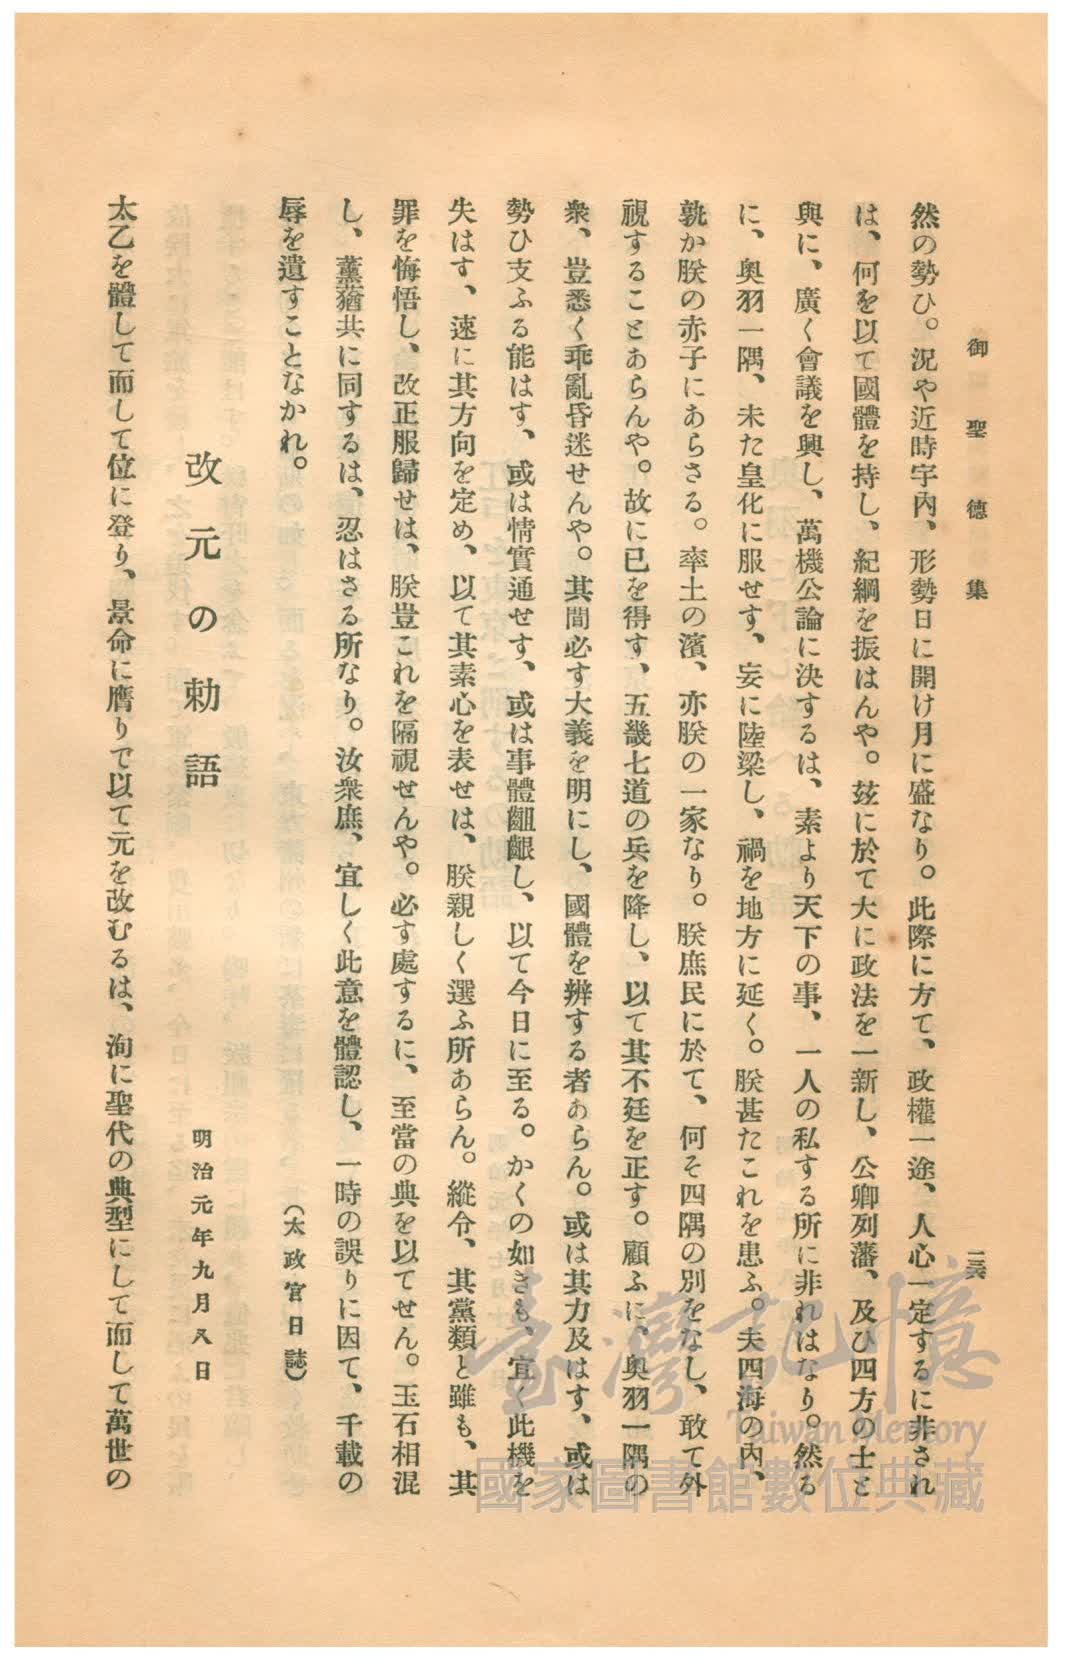 御聖德集
三六
然の勢ひ。況や近時宇內、形勢日に開け月に盛なり。此際に方て、政權一途、人心一定するに非され
は、何を以て國體を持し、紀綱を振はんや。玆に於て大に政法を一新し、公卿列藩、及ひ四方の士と
與に、廣く會議を興し、萬機公論に決するは、素より天下の事、一人の私する所に非れはなり。然る
に、奧羽一隅、未た皇化に服せす、妄に陸梁し、禍を地方に延く。朕甚たこれを患ふ。夫四海の內、
孰か朕の赤子にあらさる。率土の濱、亦朕の一家なり。朕庶民に於て、何そ四隅の別をなし、敢て外
視することあらんや。故に已を得す、五畿七道の兵を降し、以て其不廷を正す。顧ふに、奧羽一隅の
衆、豈悉く乖亂昏迷せんや。其間必す大義を明にし、國體を辨する者あらん。或は其力及はす、或は
勢ひ支ふる能はす、或は情實通せす、或は事體齟齬し、以て今日に至る。かくの如きも、宜く此機を
失はす、速に其方向を定め、以て其素心を表せは、朕親しく選ふ所あらん。縱令、其黨類と雖も、其
罪を悔悟し、改正服歸せは、朕豈これを隔視せんや。必す處するに、至當の典を以てせん。玉石相混
し、薰蕕共に同するは、忍はさる所なり。汝衆庶、宜しく此意を體認し、一時の誤りに因て、千載の
辱を遺すことなかれ。
(太政官日誌)
改元の勅語
明治元年九月八日
太乙を體して而して位に登り、景命に膺りて以て元を改むるは、洵に聖代の典型にして而して萬世の
臺灣記憶
Taiwan Memory
國家圖書館數位典藏